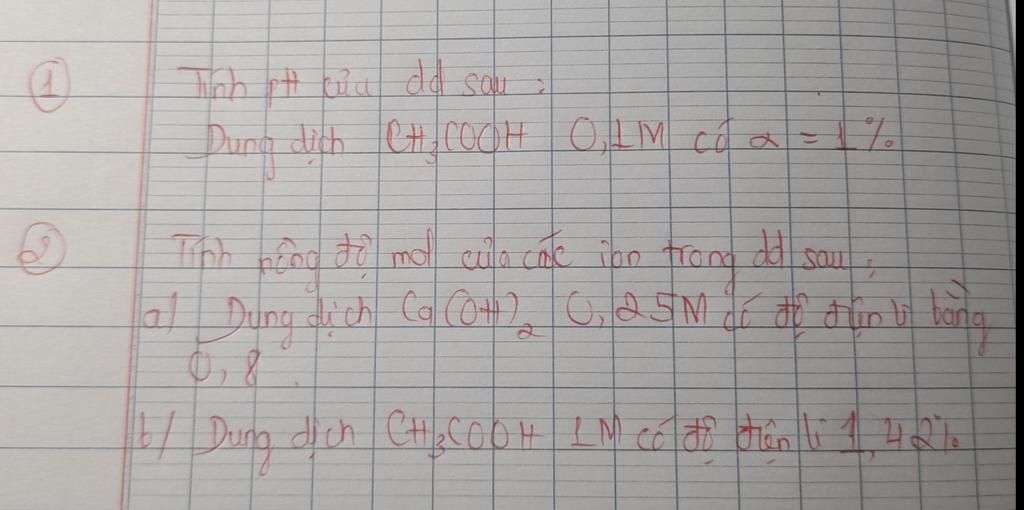 ① Tính pH của dd sau :
Dung dịch CH₃COOH 0,1M có α = 1%
② Tính nồng độ mol của các ion trong dd sau :
a) Dung dịch Ca(OH)₂ 0,25M có độ điện li bằng
0,8.
b) Dung dịch CH₃COOH 1M có độ điện li 1,42%